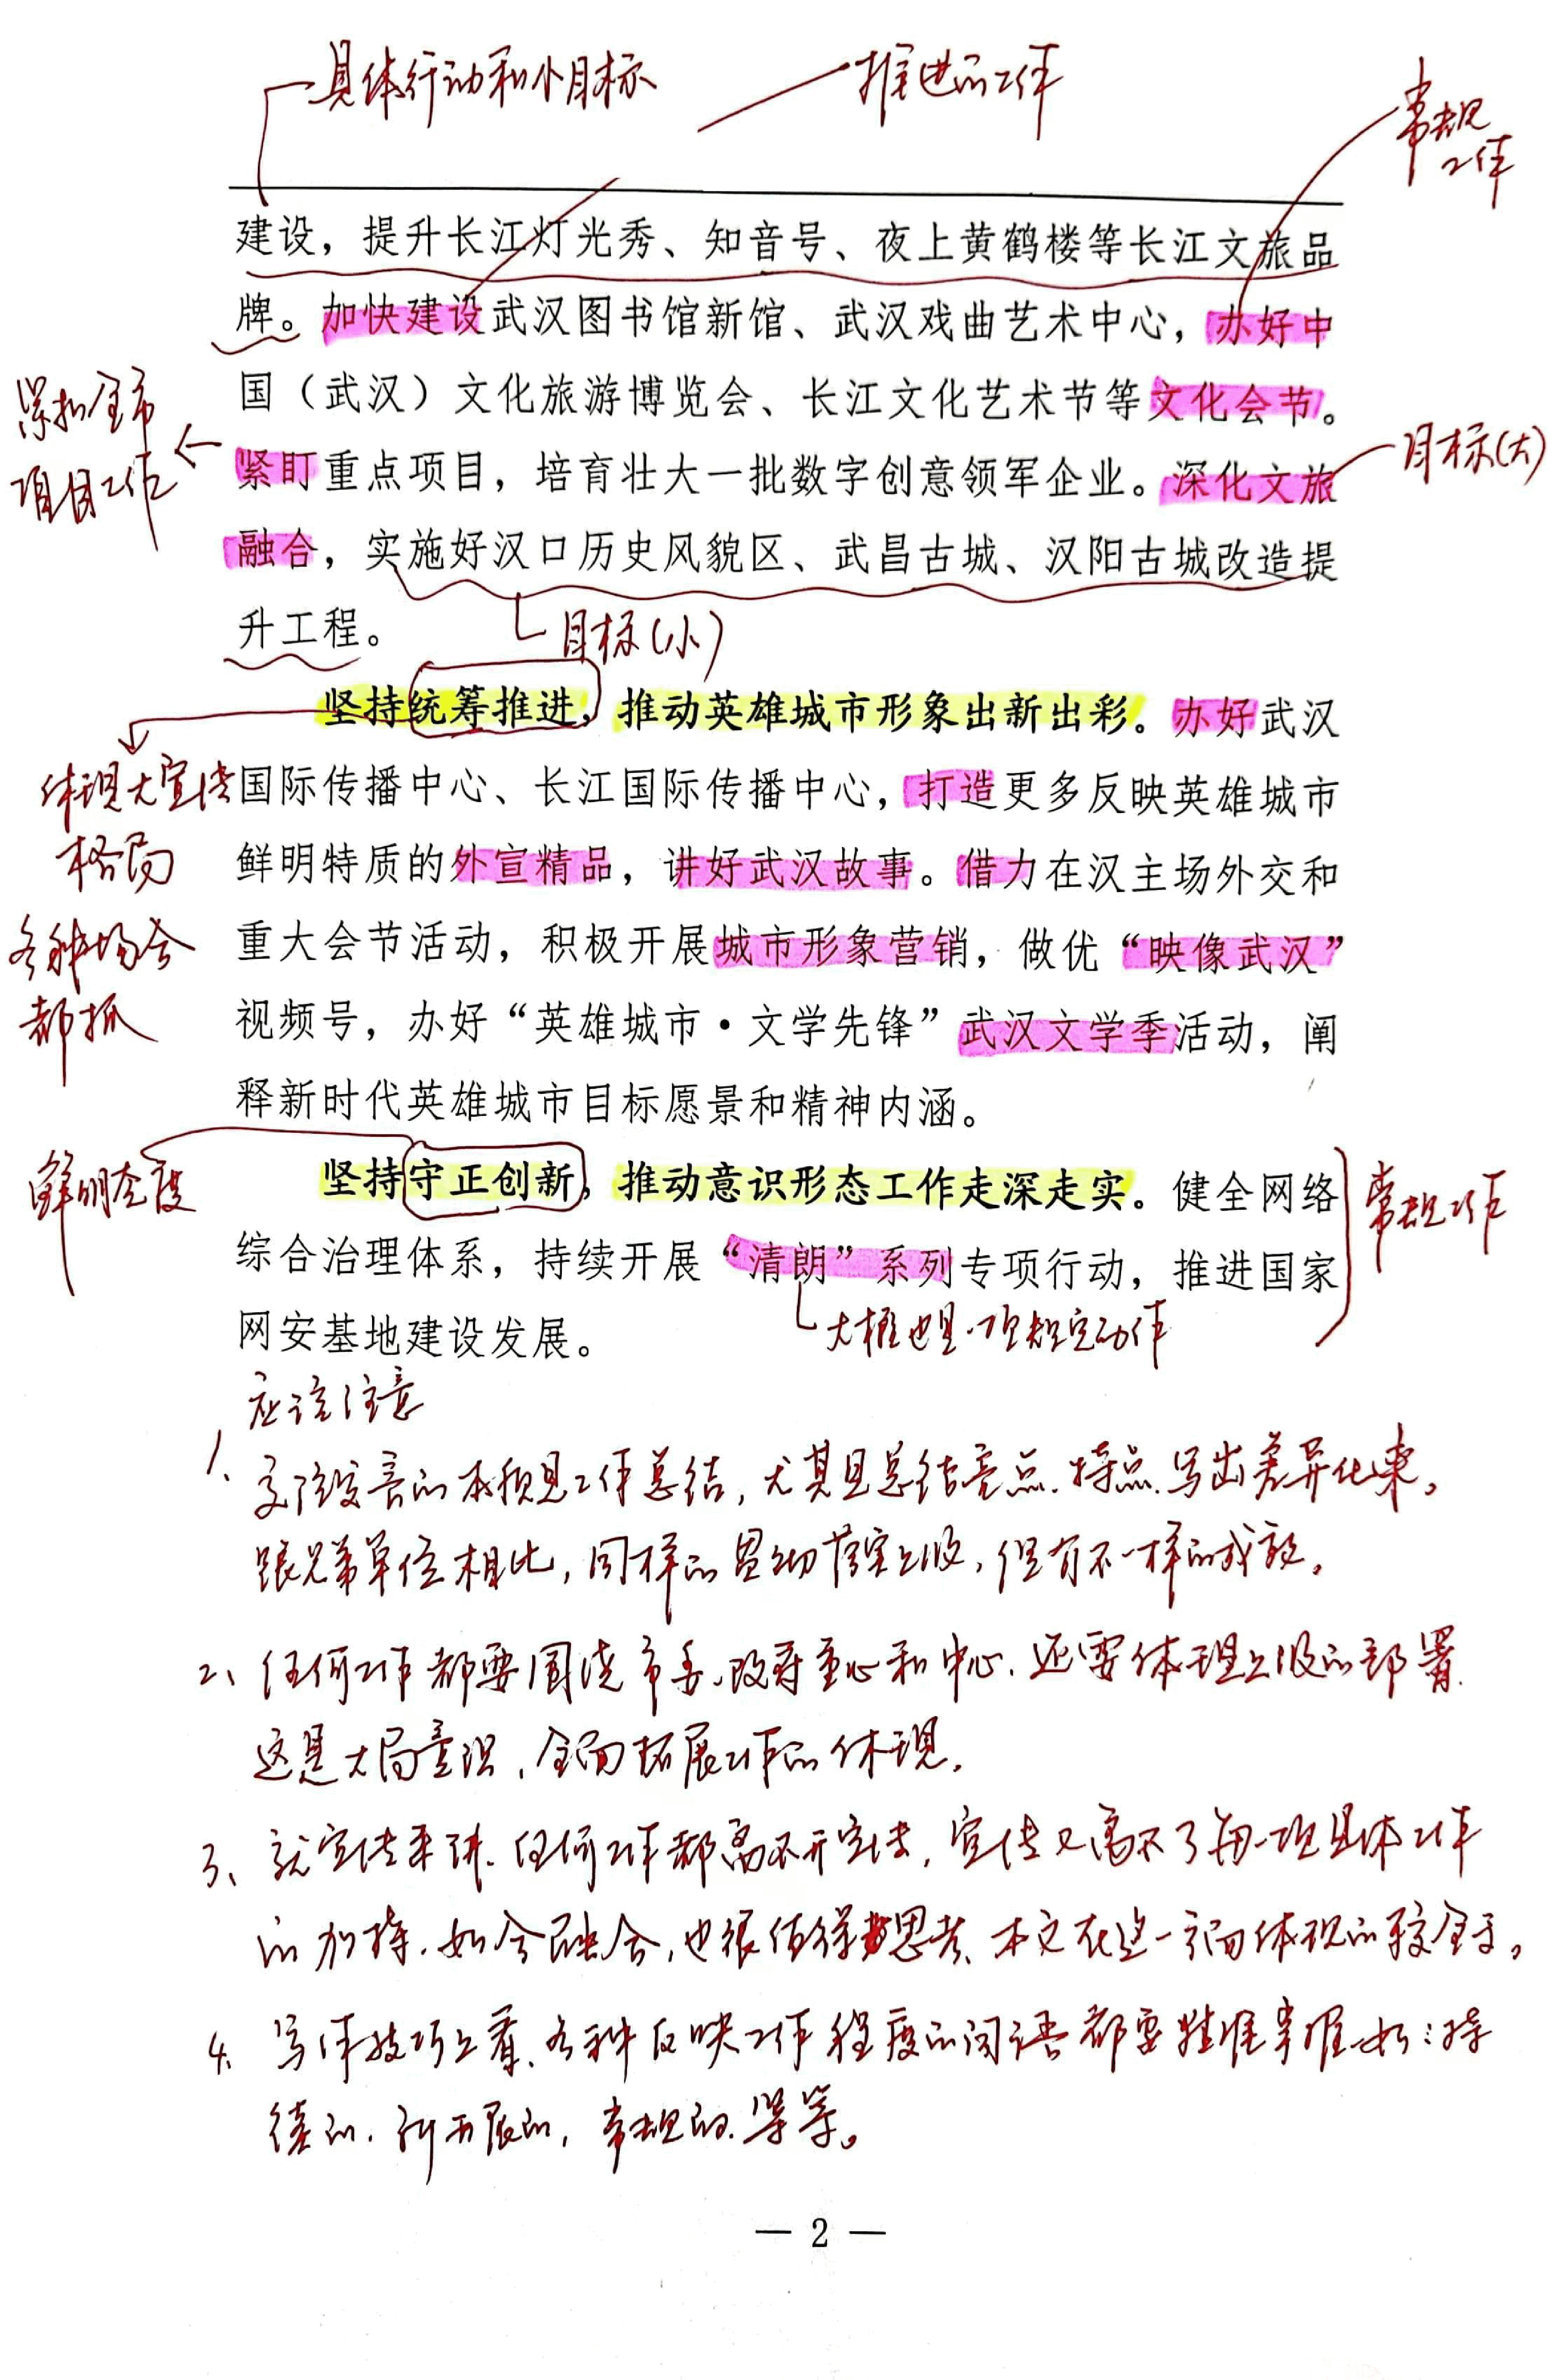 具体行动和小目标
推进的工作
常规
工作
建设，提升长江灯光秀、知音号、夜上黄鹤楼等长江文旅品
牌。加快建设武汉图书馆新馆、武汉戏曲艺术中心，办好中
国（武汉）文化旅游博览会、长江文化艺术节等文化会节。
紧扣全市
项目工作
紧盯重点项目，培育壮大一批数字创意领军企业。深化文旅
目标(大)
融合，实施好汉口历史风貌区、武昌古城、汉阳古城改造提
升工程。
目标(小)
坚持统筹推进，推动英雄城市形象出新出彩。办好武汉
体现大宣传
格局
国际传播中心、长江国际传播中心，打造更多反映英雄城市
鲜明特质的外宣精品，讲好武汉故事。借力在汉主场外交和
各种场合
都抓
重大会节活动，积极开展城市形象营销，做优“映像武汉”
视频号，办好“英雄城市·文学先锋”武汉文学季活动，阐
释新时代英雄城市目标愿景和精神内涵。
鲜明态度
坚持守正创新，推动意识形态工作走深走实。健全网络
常规工作
综合治理体系，持续开展“清朗”系列专项行动，推进国家
网安基地建设发展。
大概也是一项规定动作
应该注意
1、
工作总结，尤其是总结亮点、特点、写出差异化来。
跟兄弟单位相比，同样的贯彻落实上级，但有不一样的成效。
2、任何工作都要围绕市委、政府重心和中心、还要体现上级的部署
这是大局意识、全面拓展工作的体现。
3、就宣传来讲、任何工作都离不开宣传，宣传又离不了每一项具体工作
的加持、如今融合，也很值得思考、本文在这一方面体现的较全面。
4、写作技巧上看、各种反映工作程度的词语都要精准掌握如：持
续的、新开展的，常规的等等。
— 2 —